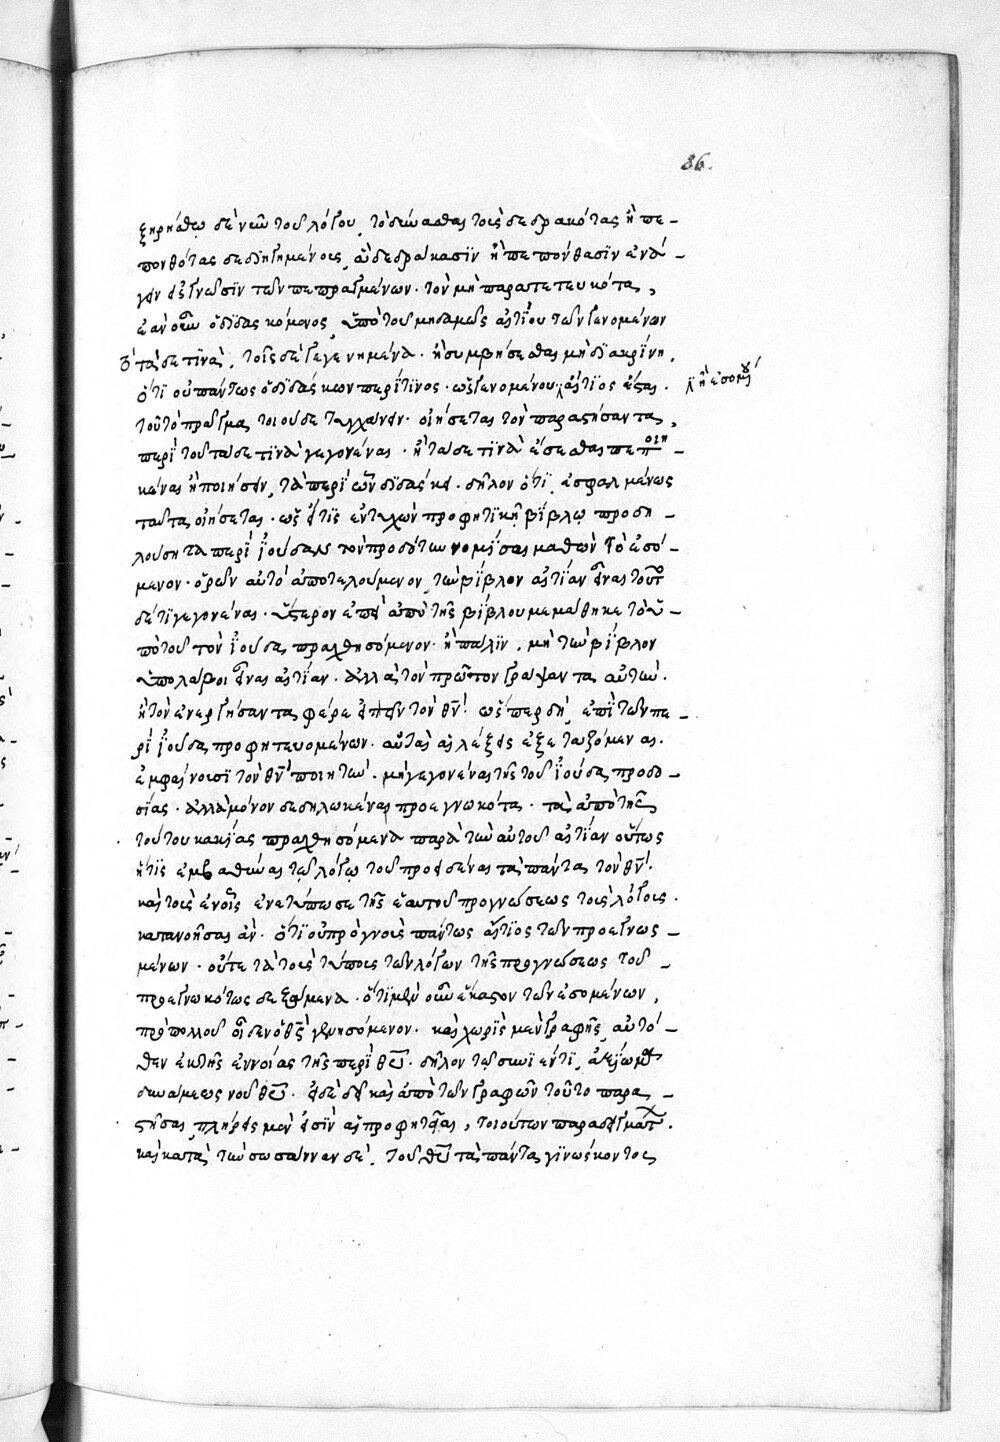 86.
ξηρήσθω δὲ νῦν τοῦ λόγου, τὸ δεύεσθαι τοῖς δεδρακότας ἢ πε-
πονθότας δεδιηγημένοις, ἃ δεδράκασϊν ἢ πεπόνθασϊν ἐνά-
γειν εξ γνῶσϊν τῶν πεπραγμένων. τὸν μὴ παρατετευκότα,
ἐὰν οὖν ὁ διδασκόμενος, ὑπὸ τοῦ μηδαμῶς αἰτΐου τῶν γενομένων
τάδέ τϊνα, τοῖς δὲ γεγενημένα. ἢ συμβήσεσθαι μὴ διακρίνη,
ὅτϊ οὐ πάντως ὁ διδάσκων περί τϊνος. ὡς γενομένου αἴτϊος ἔσται. ἢ ἐσομένου
τοῦτο πρᾶγμα τοιοῦδε τυγχάνειν. οἰήσεται τὸν παραστήσαντα,
περὶ τοῦ τάδε τϊνὰ γεγονέναι. ἢ τάδε τϊνὰ ἔσεσθαι πεποιη-
κέναι ἢ ποιήσειν, τὰ περὶ ὧν διδάσκει. δῆλον ὅτϊ, ἐσφαλμένως
ταῦτα οἰήσεται. ὡς εἴ τϊς ἐντυχὼν προφητϊκῇ βίβλῳ προδη-
λούσῃ τὰ περὶ ἰούδαν τὸν προδότην νομίσαι μαθὼν τὸ ἐσό-
μενον. ὁρῶν αὐτὸ ἀποτελούμενον, τὴν βίβλον αἰτΐαν εἶναι τοῦ τό-
δέ τϊ γεγονέναι. ὕστερον ἐπεὶ ἀπὸ τῆς βίβλου μεμάθηκε τὸ ὑ-
πὸ τοῦ τὸν ἰούδα πραχθησόμενον. ἢ πάλϊν, μὴ τὴν βίβλον
ὑπολάβοι εἶναι αἰτΐαν. ἀλλὰ τὸν πρῶτον γράψαντα αὐτὴν.
ἢ τὸν ἐνεργήσαντα φέρε εἰπεῖν τὸν θν̄. ὥσπερ δὴ, ἐπὶ τῶν πε-
ρὶ ἰούδα προφητευομένων. αὐταὶ αἱ λέξεις ἐξεταζόμεναι.
ἐμφαίνουσϊ τὸν θν̄ ποιητὴν. μὴ γεγονέναι τῆς τοῦ ἰούδα προδο-
σίας. ἀλλὰ μόνον δεδηλωκέναι προεγνωκότα. τὰ ἀπὸ τῆς
τούτου κακΐας πραχθησόμενα παρὰ τὴν αὐτοῦ αἰτΐαν οὕτως
εἴ τϊς ἐμβαθύναι τῷ λόγῳ τοῦ προειδέναι τὰ πάντα τὸν θν̄.
καὶ τοῖς ἐν οἷς ἐνετύπωσε τῆς ἑαυτοῦ προγνώσεως τοῖς λόγοις.
κατανοήσαι ἂν. ὅτϊ οὐ προγνοὺς πάντως αἴτϊος τῶν προεγνωσ-
μένων. οὔτε τὰ τοῖς τύποις τῶν λόγων τῆς προγνώσεως τοῦ-
προεγνωκότως δεξάμενα. ὅτϊ μὲν οὖν ἕκαστον τῶν ἐσομένων,
πρὸ πολλοῦ οἶδεν ὁ θς̄ γενησόμενον. καὶ χωρὶς μὲν γραφῆς, αὐτό-
θεν ἐκ τῆς ἐννοίας τῆς περὶ θῦ. δῆλον τῷ συνϊέντι, ἀξίωμα
δυνάμεως νοῦ θῦ. εἰ δὲ δεῖ καὶ ἀπὸ τῶν γραφῶν τοῦτο παρα-
στῆσαι, πλήρεις μέν εἰσϊν αἱ προφητεῖαι, τοιούτων παραδειγμάτων.
καὶ κατὰ τὴν σωσάνναν δὲ, τοῦ θῦ τὰ πάντα γϊνώσκοντος